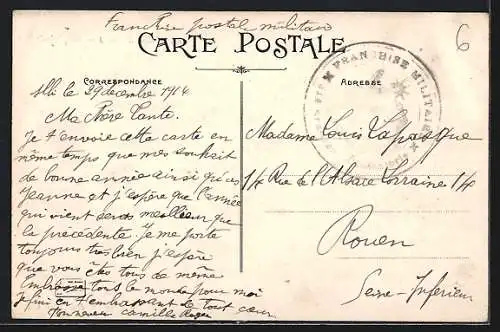 Franchise postale militaire
6
CARTE POSTALE
CORRESPONDANCE
ADRESSE
FRANCHISE MILITAIRE
le 29 decembre 1914
Ma chère Tante.
Je t'envoie cette carte en
même temps que mes souhait
de bonne année ainsi qu'à
Jeanne et j'espère que l'année
qui vient sera meilleur que
la précédente. Je me porte
toujours tres bien j'espère
que vous etes tous de même
Embrasse tous le monde pour moi
Je fini en t'embrassant de tout coeur
Camille Roger
Madame Louis
14 Rue de l'Alsace Lorraine 14
Rouen
Seine-Inferieur